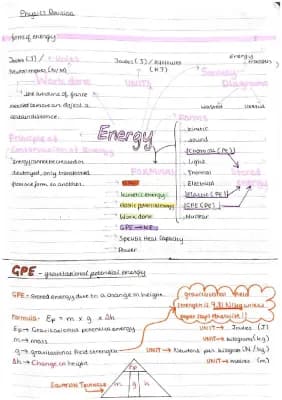 Physics Revision
forms of energy
Joules (J) /
Newton metres (N/m)
Units
Work done
Joules (J) / kilojoules
(KJ)
UNITS
energy
transfers
Sankey
Diagrams
wasted
useful
The amount of force
needed to move an object a
certain distance.
Principle of
Conservation of Energy
Energy cannot be created or
destroyed, only transferred
from one form to another.
Energy
Forms
kinetic
sound
Chemical (PE)
Light
Thermal
Electrical
Elastic (PE)
GPE (PE)
Nuclear
Stored
energy
FORMULAS
kinetic energy
elastic potential energy
Work done
GPE → KE
Specific Heat Capacity
Power
GPE - gravitational potential energy
GPE = Stored energy due to a change in height.
gravitational field
strength is 9.81 N/kg unless
paper says otherwise!!
Formula: Ep = m x g x Δh
Ep → Gravitational potential energy
UNIT → Joules (J)
m → mass
UNIT → kilograms (kg)
g → gravitational field strength
UNIT → Newtons per kilogram (N/kg)
Δh → Change in height
UNIT → metres (m)
Equation Triangle
Ep
m g h